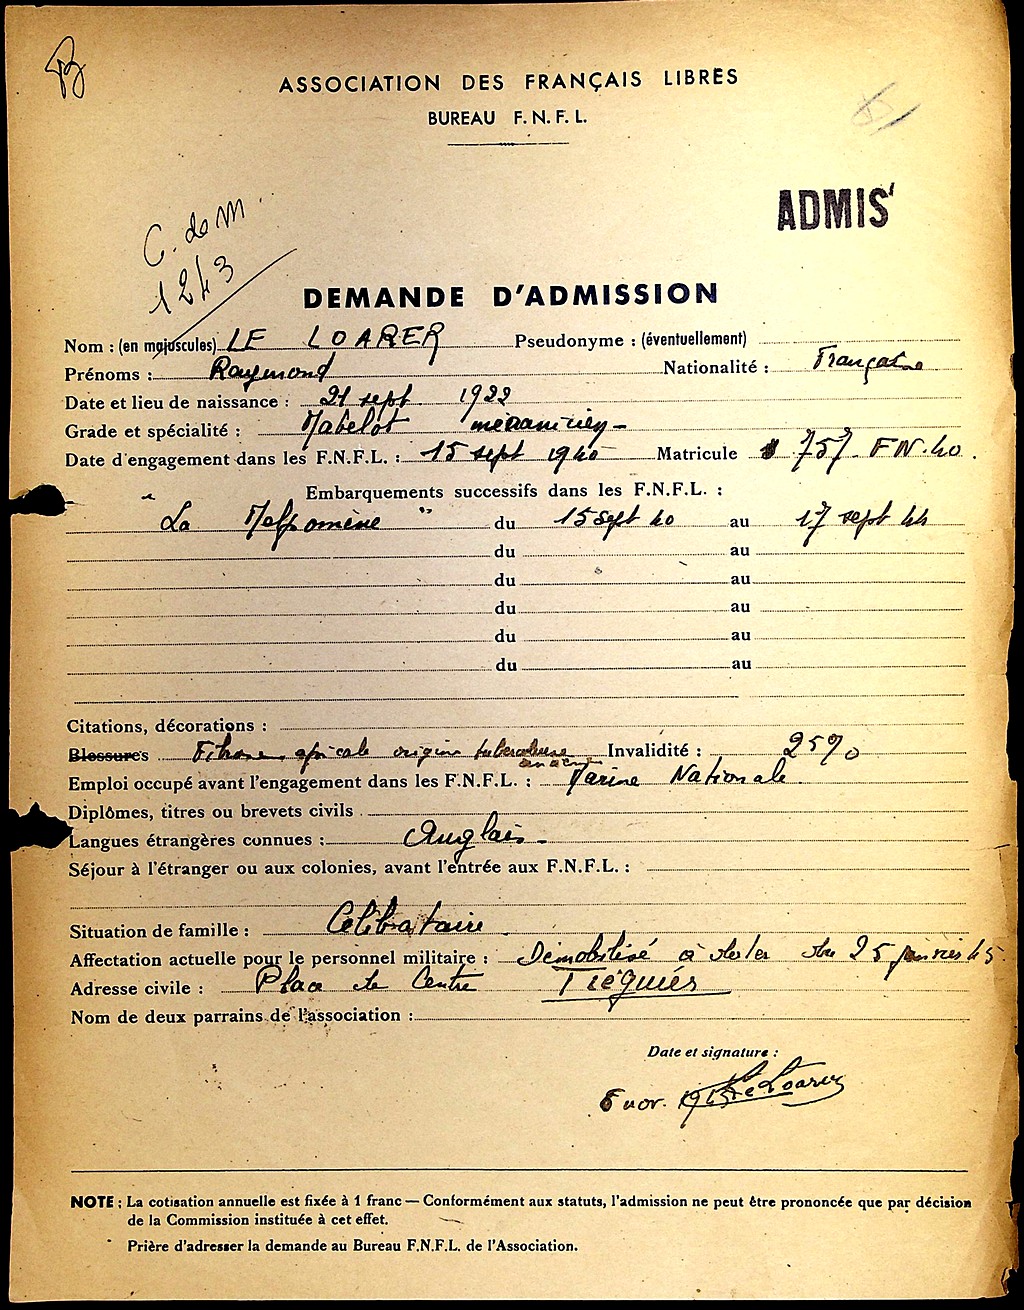 ASSOCIATION DES FRANÇAIS LIBRES
BUREAU F.N.F.L.
ADMIS
C. de M.
1243
DEMANDE D'ADMISSION
Nom : (en majuscules) LE LOARER Pseudonyme : (éventuellement)
Prénoms : Raymond Nationalité : Française
Date et lieu de naissance : 21 sept 1922
Grade et spécialité : Matelot mécanicien -
Date d'engagement dans les F.N.F.L. : 15 sept 1940 Matricule 757 FN.40.
Embarquements successifs dans les F.N.F.L. :
"La Melpomène" du 15 sept 40 au 17 sept 44
du au
du au
du au
du au
du au
Citations, décorations :
Blessures apicale origine tuberculeuse Invalidité : 25%
Emploi occupé avant l'engagement dans les F.N.F.L. : Marine Nationale
Diplômes, titres ou brevets civils
Langues étrangères connues : Anglais.
Séjour à l'étranger ou aux colonies, avant l'entrée aux F.N.F.L. :
Situation de famille : Célibataire.
Affectation actuelle pour le personnel militaire : Démobilisé à dater du 25 janvier 45
Adresse civile : Place du Centre Tréguier
Nom de deux parrains de l'association :
Date et signature :
nov. 1945 Le Loarer
NOTE : La cotisation annuelle est fixée à 1 franc — Conformément aux statuts, l'admission ne peut être prononcée que par décision
de la Commission instituée à cet effet.
Prière d'adresser la demande au Bureau F.N.F.L. de l'Association.